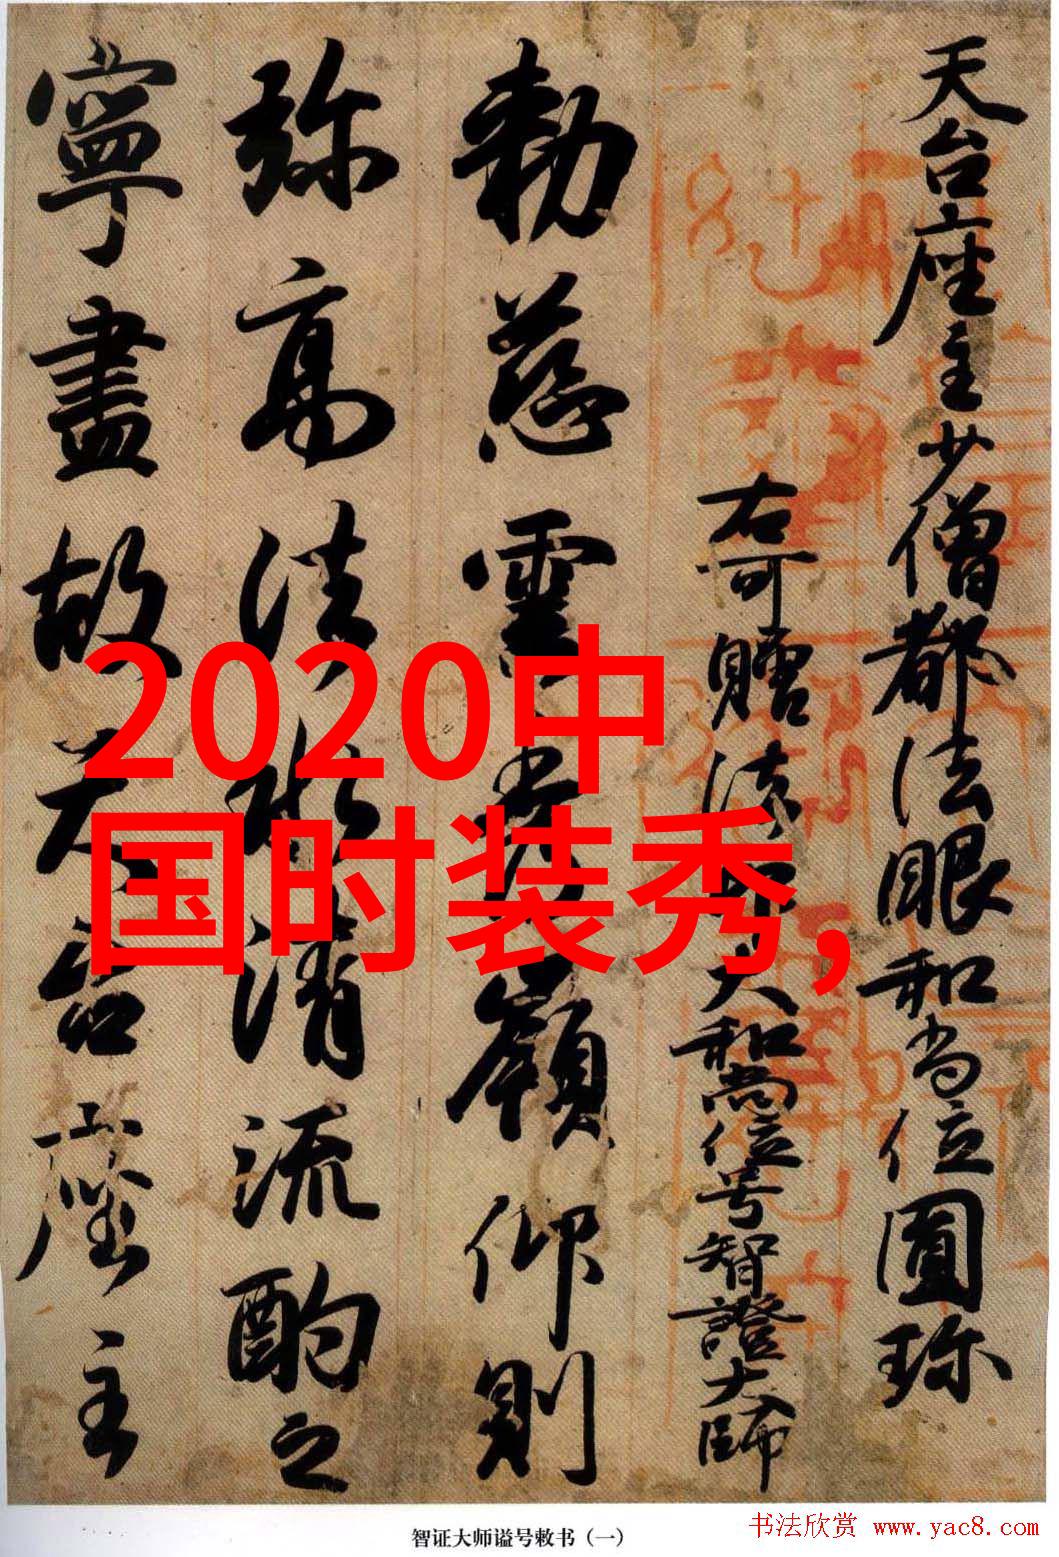 天台座主少僧都法眼和尚位圓珎
右可贈法印大和尚位号智證大師
勅慈雲秀嶺仰則
弥高法水清流酌之
寧盡故天台座主
2020中
国时装秀,
智证大师谥号敕书（一）
书法欣赏 www.yac8.com